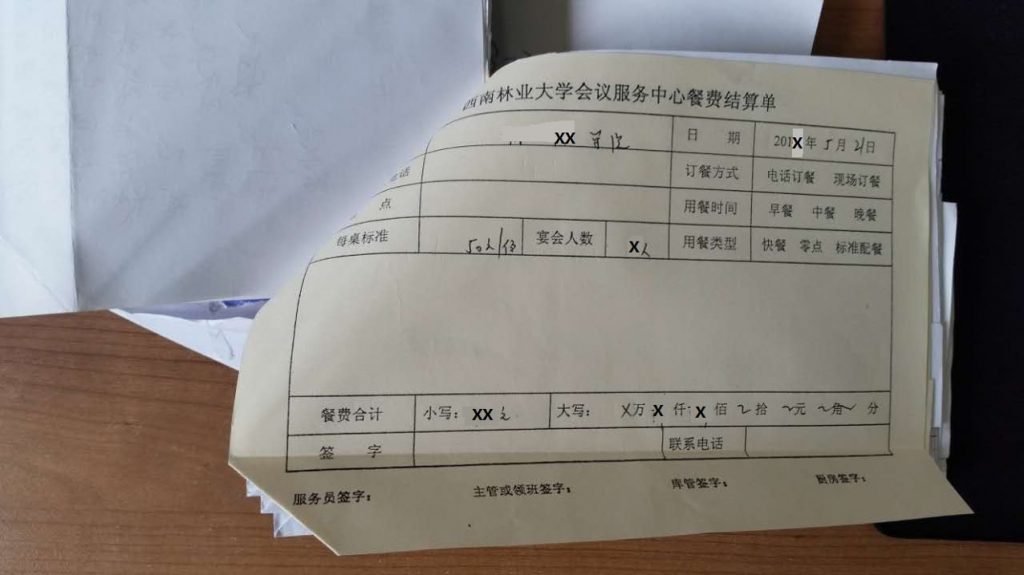 西南林业大学会议服务中心餐费结算单
XX 学院 日 期 201X年5月21日
话 订餐方式 电话订餐 现场订餐
点 用餐时间 早餐 中餐 晚餐
每桌标准 50元/ 宴会人数 X人 用餐类型 快餐 零点 标准配餐
餐费合计 小写: XX元 大写: X万X仟X佰 拾 元 角 分
签 字 联系电话
服务员签字: 主管或领班签字: 库管签字: 厨房签字: